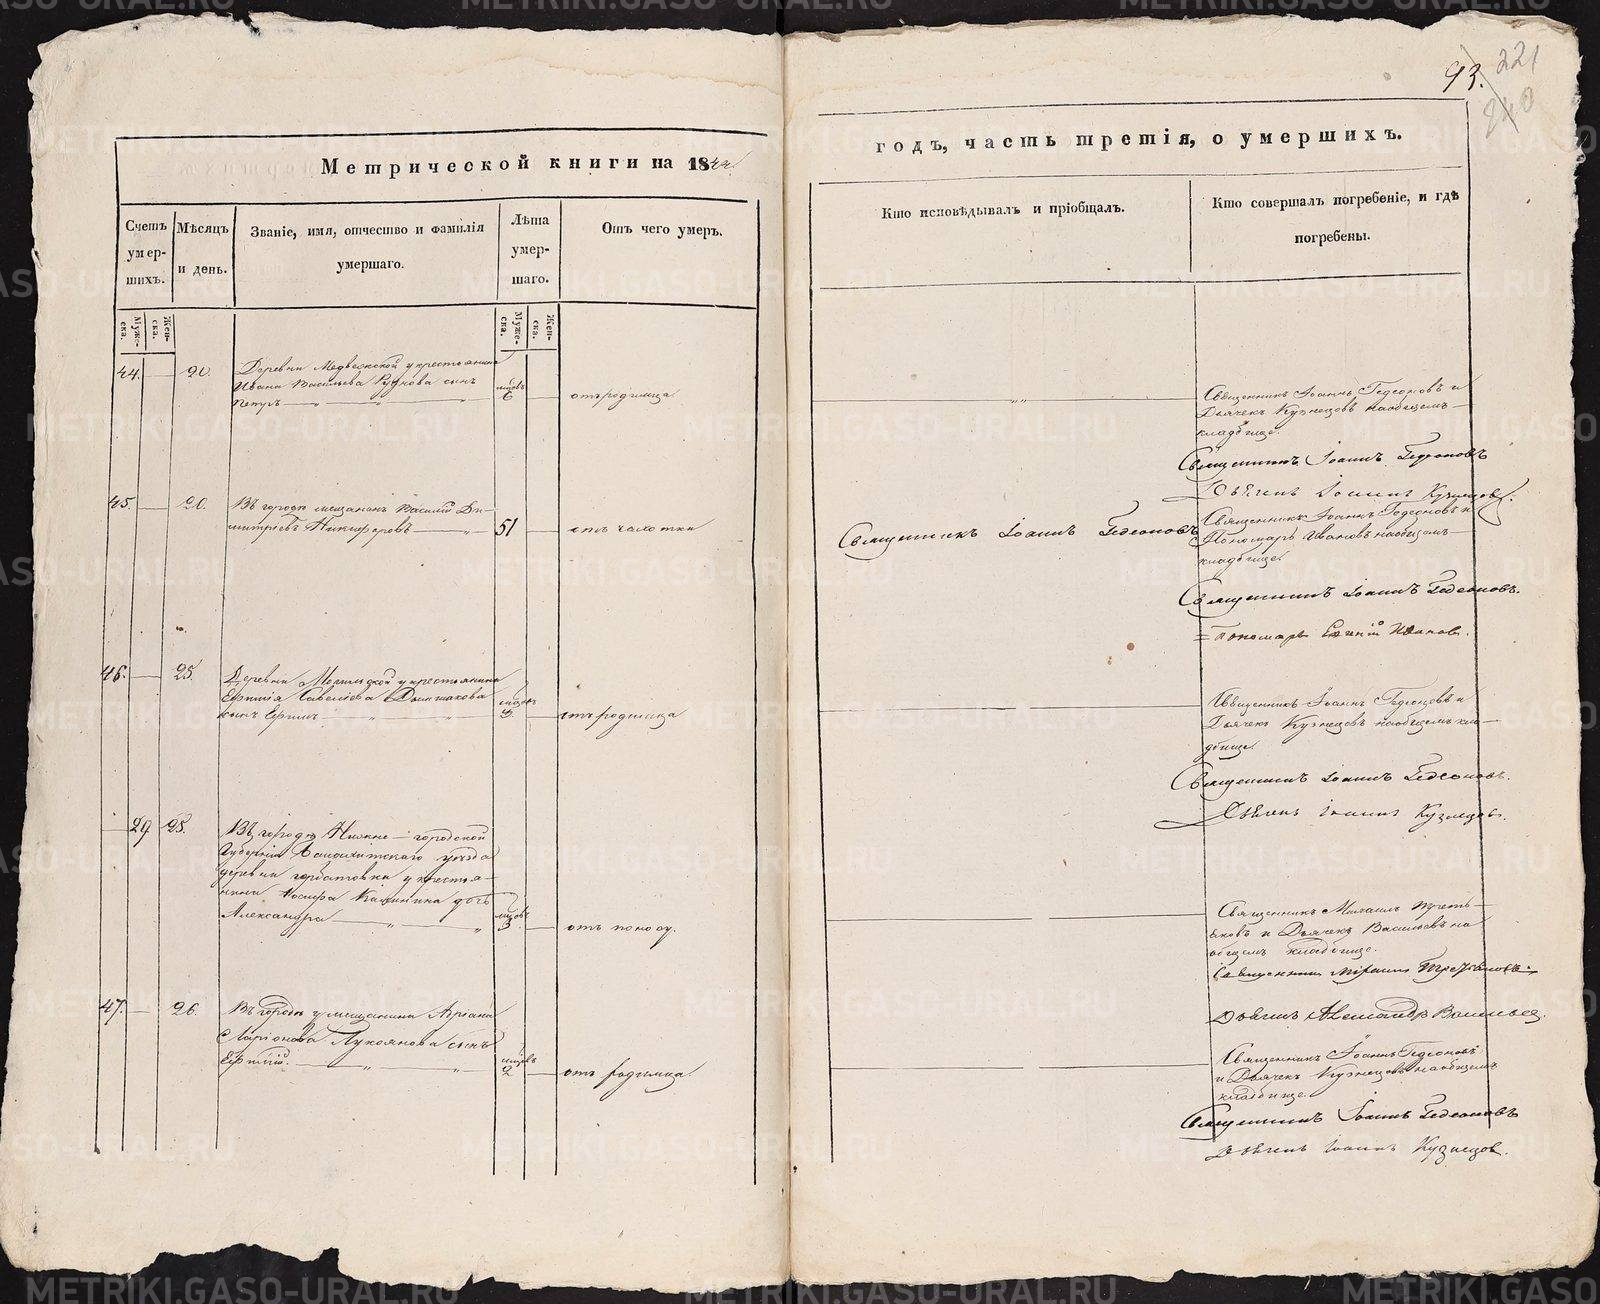 93. 221
240
Метрической книги на 1844
годъ, часть третія, о умершихъ.
Счетъ умер-шихъ.
Мѣсяцъ и день.
Званіе, имя, отчество и фамилія умершаго.
Лѣта умер-шаго.
Отъ чего умеръ.
Кто исповѣдывалъ и пріобщалъ.
Кто совершалъ погребеніе, и гдѣ погребены.
Муже-ска.
Жен-ска.
Муже-ска.
Жен-ска.
44. 20. Деревни Медвежской у крестьянина
Ивана Васильева сынъ
Петръ 6 отъ родимца
Священникъ Іоаннъ Гедеоновъ и
Дьячекъ Кузнецовъ на общемъ
кладбище.
Священникъ Іоаннъ Гедеоновъ
Дьячекъ Іоаннъ Кузнецовъ.
45. 20. Въ городѣ мещанинъ Василій Ди-
митріевъ Никифоровъ 51 отъ чахотки
Священникъ Іоаннъ Гедеоновъ
Священникъ Іоаннъ Гедеоновъ и
Пономарь Ивановъ на общемъ
кладбище.
Священникъ Іоаннъ Гедеоновъ.
Пономарь Ивановъ.
46. 25. Деревни у крестьянина
Ефимія Савельева
сынъ Ефимъ 3. отъ родимца
Священникъ Іоаннъ Гедеоновъ и
Дьячекъ Кузнецовъ на общемъ кла-
дбище.
Священникъ Іоаннъ Гедеоновъ.
Дьячекъ Іоаннъ Кузнецовъ.
29 25. Въ городѣ Нижне-городской
Губерніи уѣзда
деревни Горбатовки у крестья-
нина Іосифа Калинина дочь
Александра 3. отъ поносу.
Священникъ Михаилъ Треть-
яковъ и Дьячекъ Васильевъ на
общемъ кладбище.
Священникъ Михаилъ Третьяковъ.
Дьячекъ Александръ Васильевъ.
47. 26. Въ городѣ у мещанина Адріана
Ларіонова Лукоянова сынъ
Ефимій. 2 отъ родимца
Священникъ Іоаннъ Гедеоновъ
и Дьячекъ Кузнецовъ на общемъ
кладбище.
Священникъ Іоаннъ Гедеоновъ
Дьячекъ Іоаннъ Кузнецовъ.
METRIKI.GASO-URAL.RU